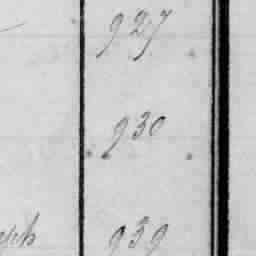 927
930
939